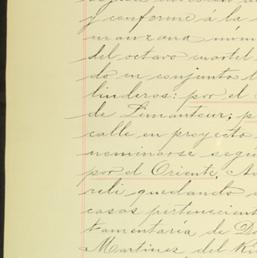 y conforme á la
manzana num
del octavo cuartel
do en conjunto
linderos: por el
de Limantour; p
calle en proyecto
nominarse segu
por el Oriente, Av
reli quedando
casas pertenecient
tamentaria de D
Martinez del Ri